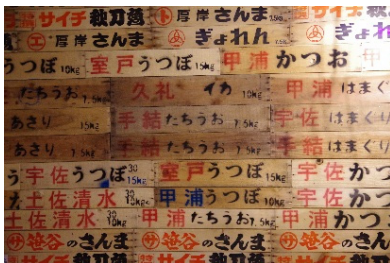 サイチ 秋刀魚 厚岸 さんま サイチ
厚岸 さんま ぎょれん
うつぼ 10kg 室戸 うつぼ 15kg 甲浦 かつお
たちうお 7.5kg 久礼 イカ 10kg 甲浦 はまぐ
あさり 15kg 手結 たちうお 7.5kg 宇佐 はまぐり
あさり 7.5kg 手結 たちうお 7.5kg 手結 はまぐり
う 宇佐 うつぼ 30 15kg 室戸 うつぼ 15kg 宇佐 かつ
な 土佐清水 30 甲浦 うつぼ 10kg 宇佐 かつ
土佐清水 30 10kg 甲浦 たちうお 7.5kg 甲浦 かつ
サ 笹谷の さんま サ 笹谷の さんま サ 笹谷の
サイチ サイチ